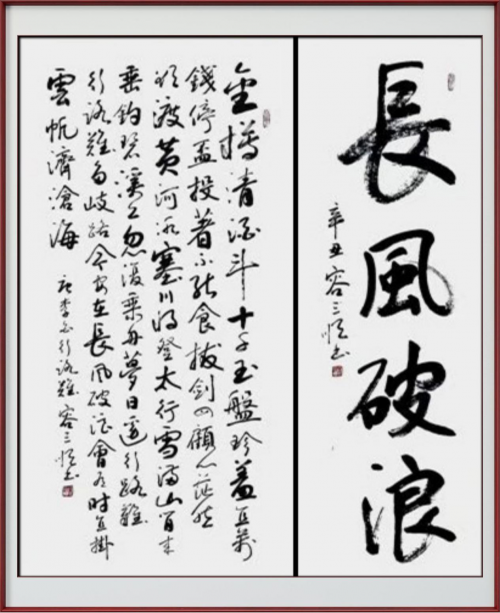 長風破浪
辛丑 容三书
金樽清酒斗十千玉盤珍羞直萬
錢停盃投箸不能食拔劍四顧心茫然
欲渡黄河冰塞川將登太行雪满山閒来
垂釣碧溪上忽復乘舟夢日邊行路難
行路難多岐路今安在長風破浪會有時直掛
雲帆濟滄海
唐李白行路難 容三书